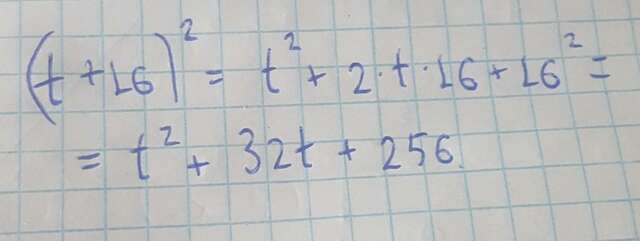 (t + 16)² = t² + 2 · t · 16 + 16² =
= t² + 32t + 256